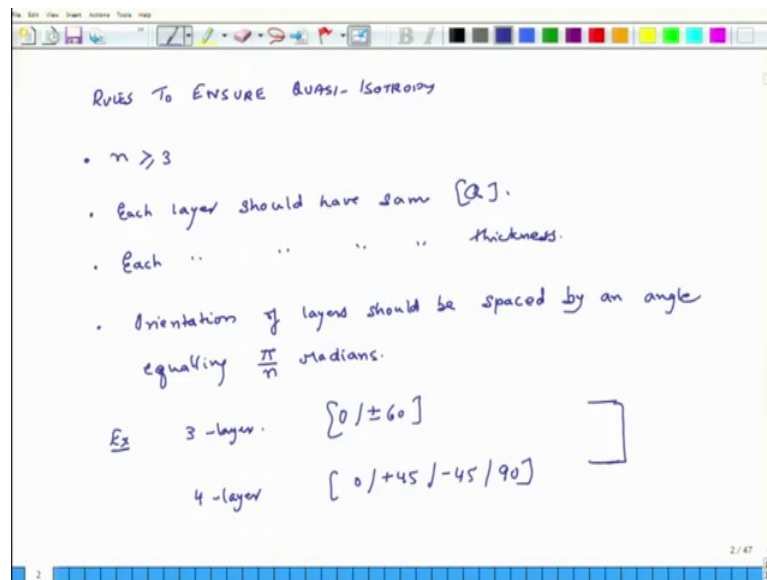 File Edit View Insert Actions Tools Help
B I
RULES TO ENSURE QUASI-ISOTROPY
• n ≥ 3
• Each layer should have sam [Q].
• Each " " " " thickness.
• Orientation of layers should be spaced by an angle
equalling π/n radians.
Ex 3-layer. [0/±60]
4-layer [0/+45/-45/90]
2/47
2